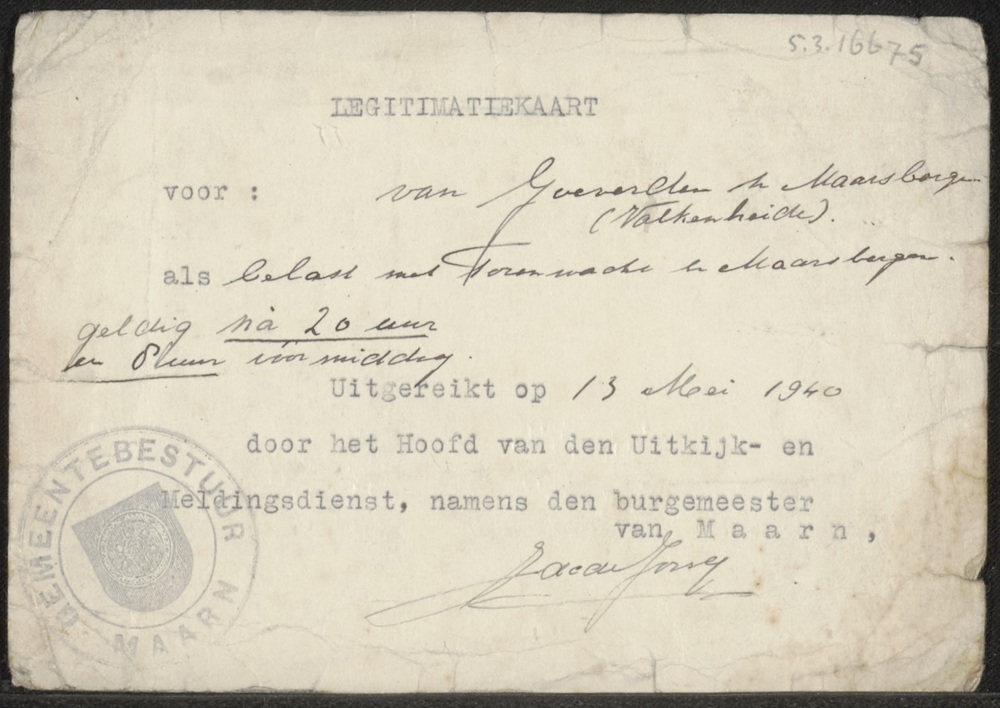 5.3.16675
LEGITIMATIEKAART
voor : van Goeverden te Maarsbergen
(Valkenheide).
als belast met Torenwacht te Maarsbergen.
geldig na 20 uur
en 8 uur vóórmiddag.
Uitgereikt op 13 Mei 1940
door het Hoofd van den Uitkijk- en
Meldingsdienst, namens den burgemeester
van Maarn,
GEMEENTEBESTUUR
MAARN